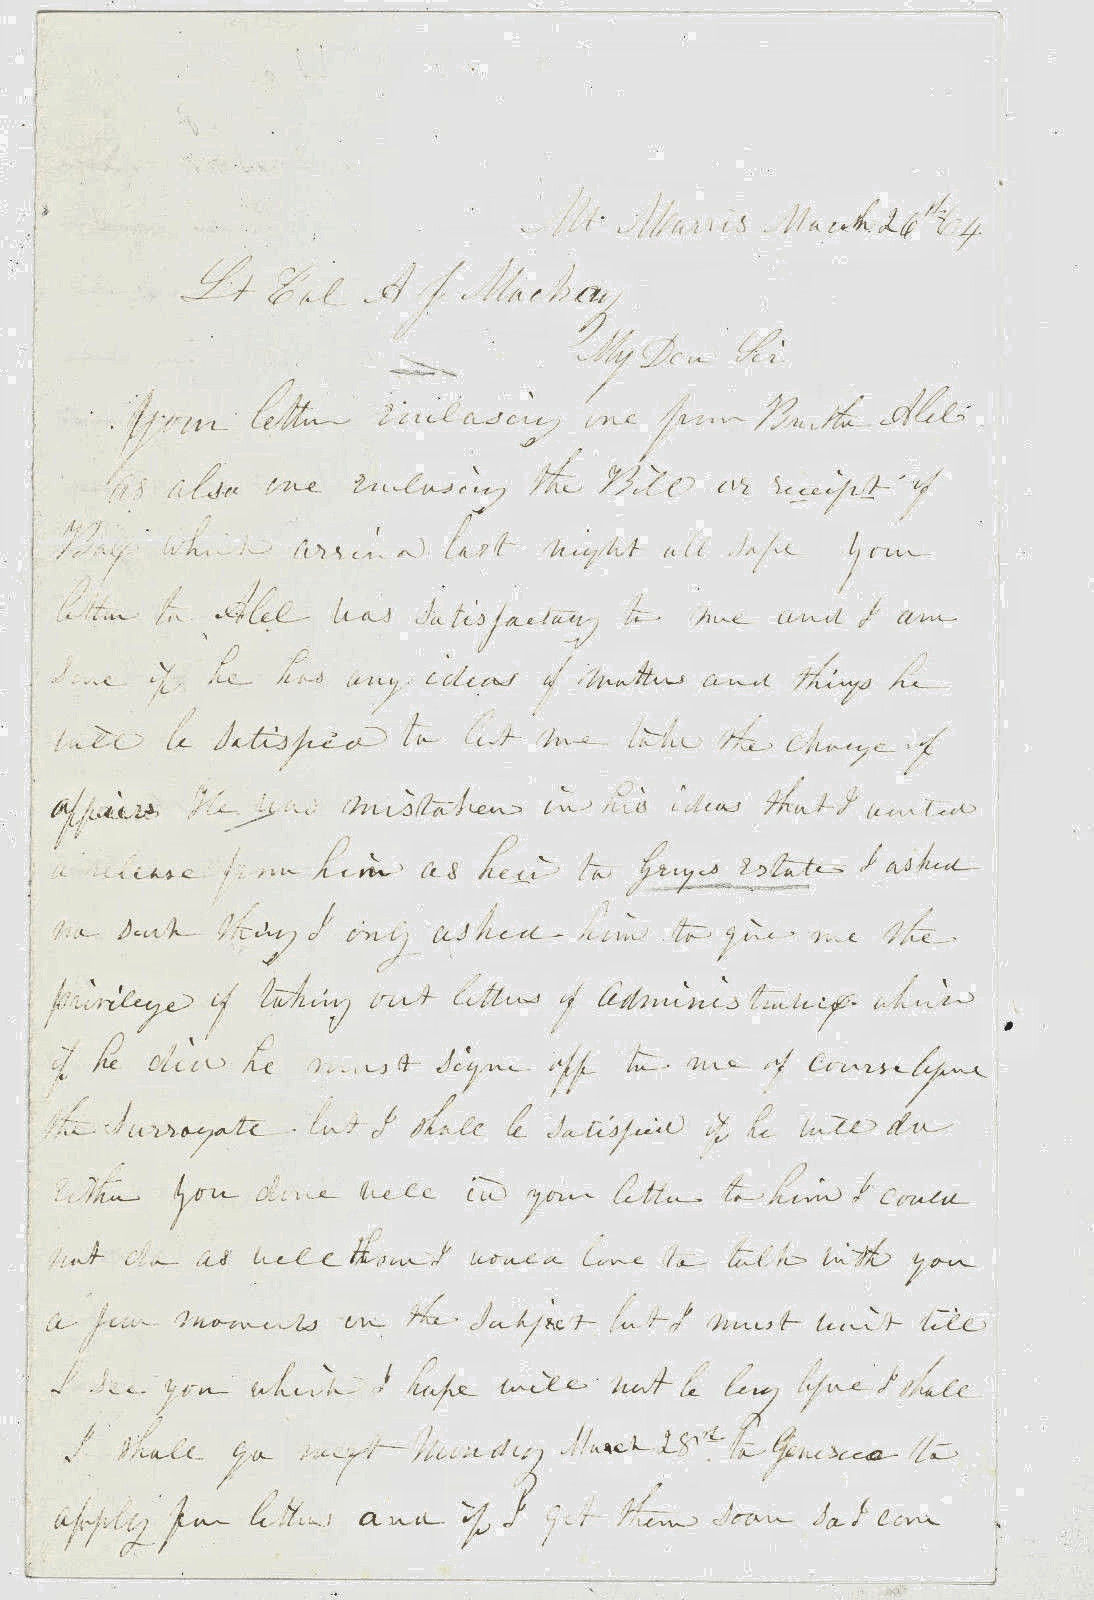 Mt. Morris March 26th/64
Lt Col A J Mackay
My Dear Sir
Your letter enclosing one from Brother Abel
as also one enclosing the Bill or receipt of
which arrived last night all safe your
letter to Abel was satisfactory to me and I am
sure if he has any ideas of matters and things he
will be satisfied to let me take the charge of
affairs He was mistaken in his ideas that I wanted
a release from him as heir to Grays estate I asked
no such thing I only asked him to give me the
privilege of taking out letters of which
if he did he must signe off to me of course before
the Surrogate but I shall be satisfied if he will do
either you done well in your letter to him I could
not do as well I would love to talk with you
a few moments on the subject but I must wait till
I see you which I hope will not be long before I shall
I shall go next Munday March 28 to Geneseo to
apply for letters and if I get them soon so I can